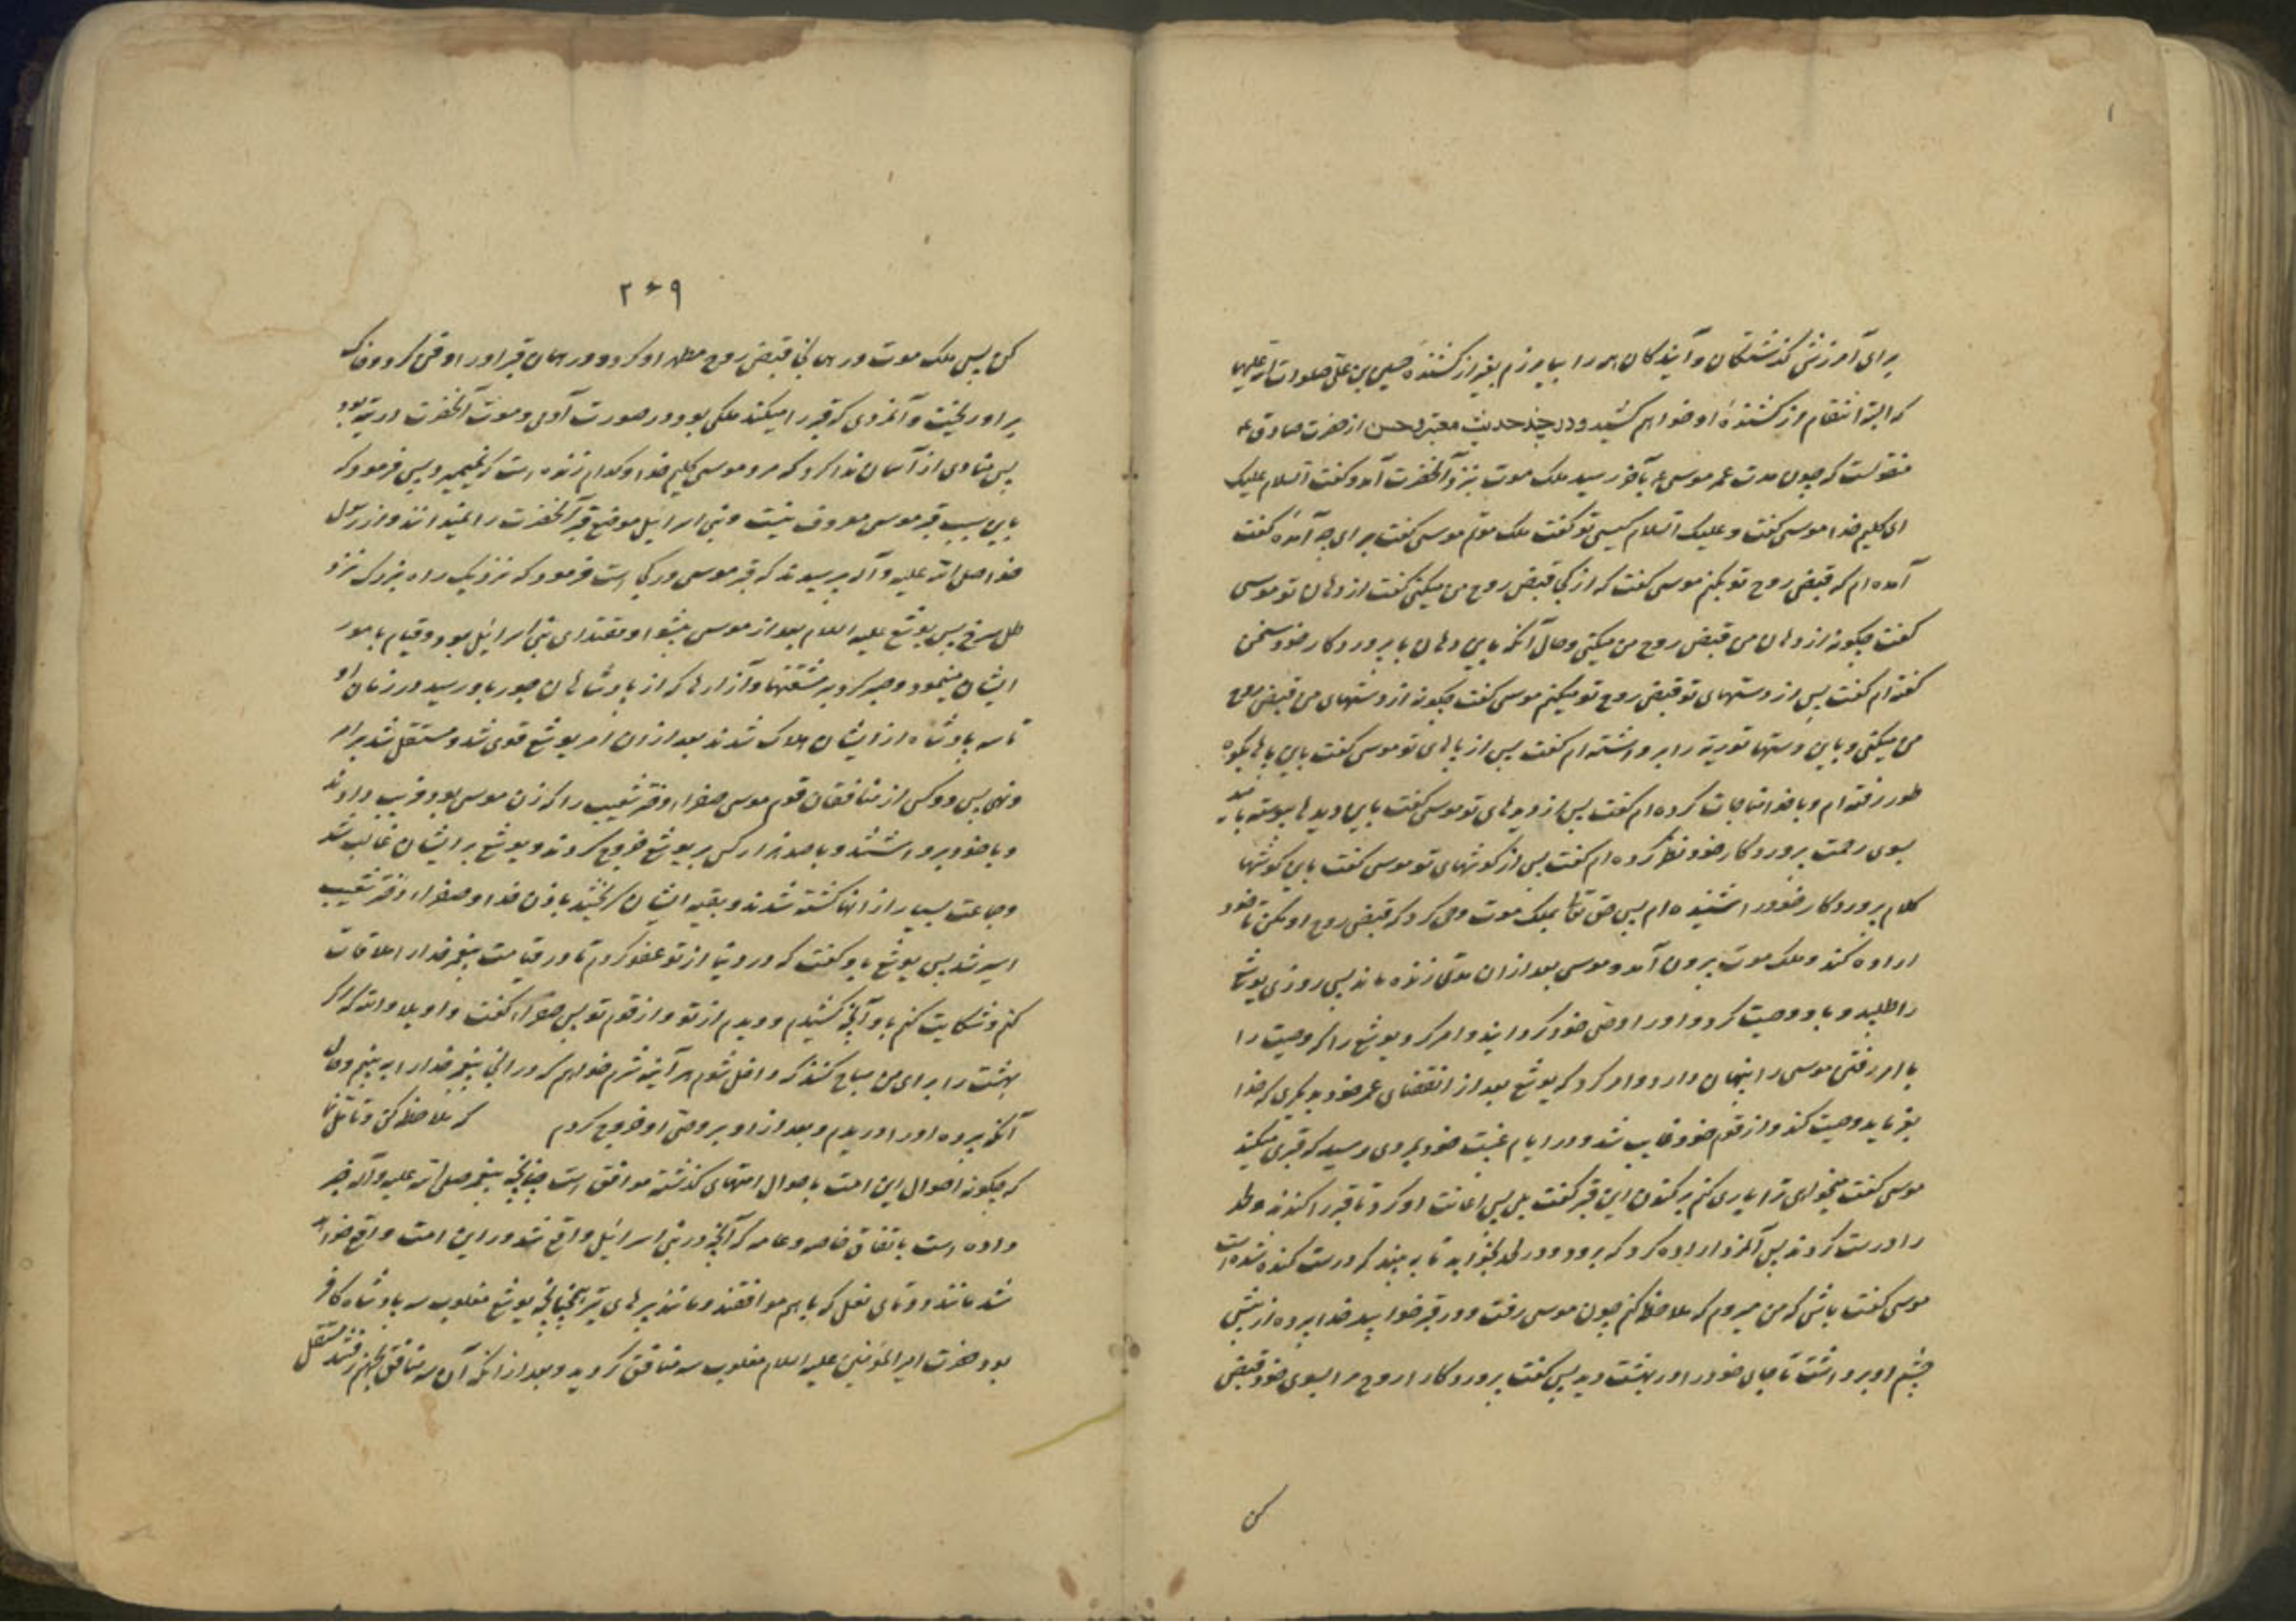 برای آمرزش گذشتگان و آیندگان همه را بیامرزم بغیر از کشندهٔ حسین بن علی صلوات الله علیهما
که البته انتقام از کشندهٔ او خواهم کشید و در چند حدیث معتبر و حسن از حضرت صادق ع
منقولست که چون مدت عمر موسی ع بآخر رسید ملک موت بنزد آنحضرت آمد و کفت السلام علیک
ای کلیم خدا موسی کفت و علیک السلام کیستی تو کفت ملک موتم موسی کفت برای چه آمدهٔ کفت
آمده ام که قبض روح تو بکنم موسی کفت که از کجا قبض روح من میکنی کفت از دهان تو موسی
کفت چکونه از دهان من قبض روح من میکنی و حال آنکه باین دهان با پروردکار خود سخن
کفته ام کفت پس از دستهای تو قبض روح تو میکنم موسی کفت چکونه از دستهای من قبض روح
من میکنی و باین دستها توریة را برداشته ام کفت پس از پاهای تو موسی کفت باین پاها بکوه
طور رفته ام و با خدا مناجات کرده ام کفت پس از دیدهای تو موسی کفت باین دیدها پیوسته بامید
بسوی رحمت پروردکار خود نظر کرده ام کفت پس از کوشهای تو موسی کفت باین کوشها
کلام پروردکار خود را شنیده ام پس حق تعالی بملک موت وحی کرد که قبض روح او مکن تا خود
اراده کند و ملک موت بیرون آمد و موسی بعد از ان مدتی زنده ماند پس روزی یوشع
را طلبید و باو وصیت کرد و او را وصی خود کردانید و امر کرد یوشع را که وصیت را
با امر رفتن موسی را پنهان دارد و امر کرد که یوشع بعد از انقضای عمر خود بدیکری که خدا
بفرماید وصیت کند و از قوم خود غایب شد و در ایام غیبت خود بمردی رسید که قبری میکند
موسی کفت میخواهی ترا یاری کنم بر کندن این قبر کفت بلی پس اعانت او کرد تا قبر را کندند و لحد
را درست کردند پس آنمرد اراده کرد که برود و در لحد بخوابد تا به بیند که درست کنده شده است
موسی کفت باش که من میروم که ملاحظه کنم چون موسی رفت و در قبر خوابید خدا پرده از پیش
چشم او برداشت تا جای خود را در بهشت دید پس کفت پروردکارا روح مرا بسوی خود قبض
کن
۲۶۹
کن پس ملک موت در همانجا قبض روح مطهر او کرد و در همان قبر او را دفن کرد و خاک
بر او ریخت و آنمردی که قبر را میکند ملکی بود در صورت آدمی و موت آنحضرت در تیه بود
پس منادی از آسمان ندا کرد که مرد موسی کلیم خدا و کدام زنده است که نمیمیرد پس فرمود که
باین سبب قبر موسی معروف نیست و بنی اسرائیل موضع قبر آنحضرت را نمیدانند و از رسول
خدا صلی الله علیه و آله پرسیدند که قبر موسی در کجا است فرمود که نزدیک راه بزرک نزد
تل سرخ پس یوشع علیه السلام بعد از موسی پیشوا و مقتدای بنی اسرائیل بود و قیام بامور
ایشان مینمود و صبر کرد بر مشقتها و آزارها که از پادشاهان جور باو رسید در زمان او
تا سه پادشاه از ایشان هلاک شدند بعد از ان امر یوشع قوی شد و مستقل شد بر امر
و نهی پس دو کس از منافقان قوم موسی صفرا دختر شعیب را که زن موسی بود فریب دادند
و با خود برداشتند و با صد هزار کس بر یوشع خروج کردند و یوشع بر ایشان غالب شد
و جماعت بسیار از انها کشته شدند و بقیه ایشان کریختند باذن خدا و صفرا دختر شعیب
اسیر شد پس یوشع باو کفت که در دنیا از تو عفو کردم تا در قیامت پیغمبر خدا را ملاقات
کنم و شکایت کنم باو آنچه کشیدم و دیدم از تو و از قوم تو پس صفرا کفت واویلاه والله که اکر
بهشت را برای من مباح کنند که داخل شوم هر آینه شرم خواهم کرد که در انجا پیغمبر خدا را به بینم و حال
آنکه پرده او را دریدم و بعد از او بر وصی او خروج کردم که ملاحظه کن و تأمل نما
که چکونه احوال این امت باحوال امتهای کذشته موافق است چنانچه پیغمبر صلی الله علیه و آله خبر
داده است باتفاق خاصه و عامه که آنچه در بنی اسرائیل واقع شد در این امت واقع خواهد
شد مانند دو تای نعل که باهم موافقند و مانند پرهای تیر چنانچه یوشع مغلوب سه پادشاه کافر
بود حضرت امیر المؤمنین علیه السلام مغلوب سه منافق کردید و بعد از انکه آن سه منافق بجهنم رفتند مستقل